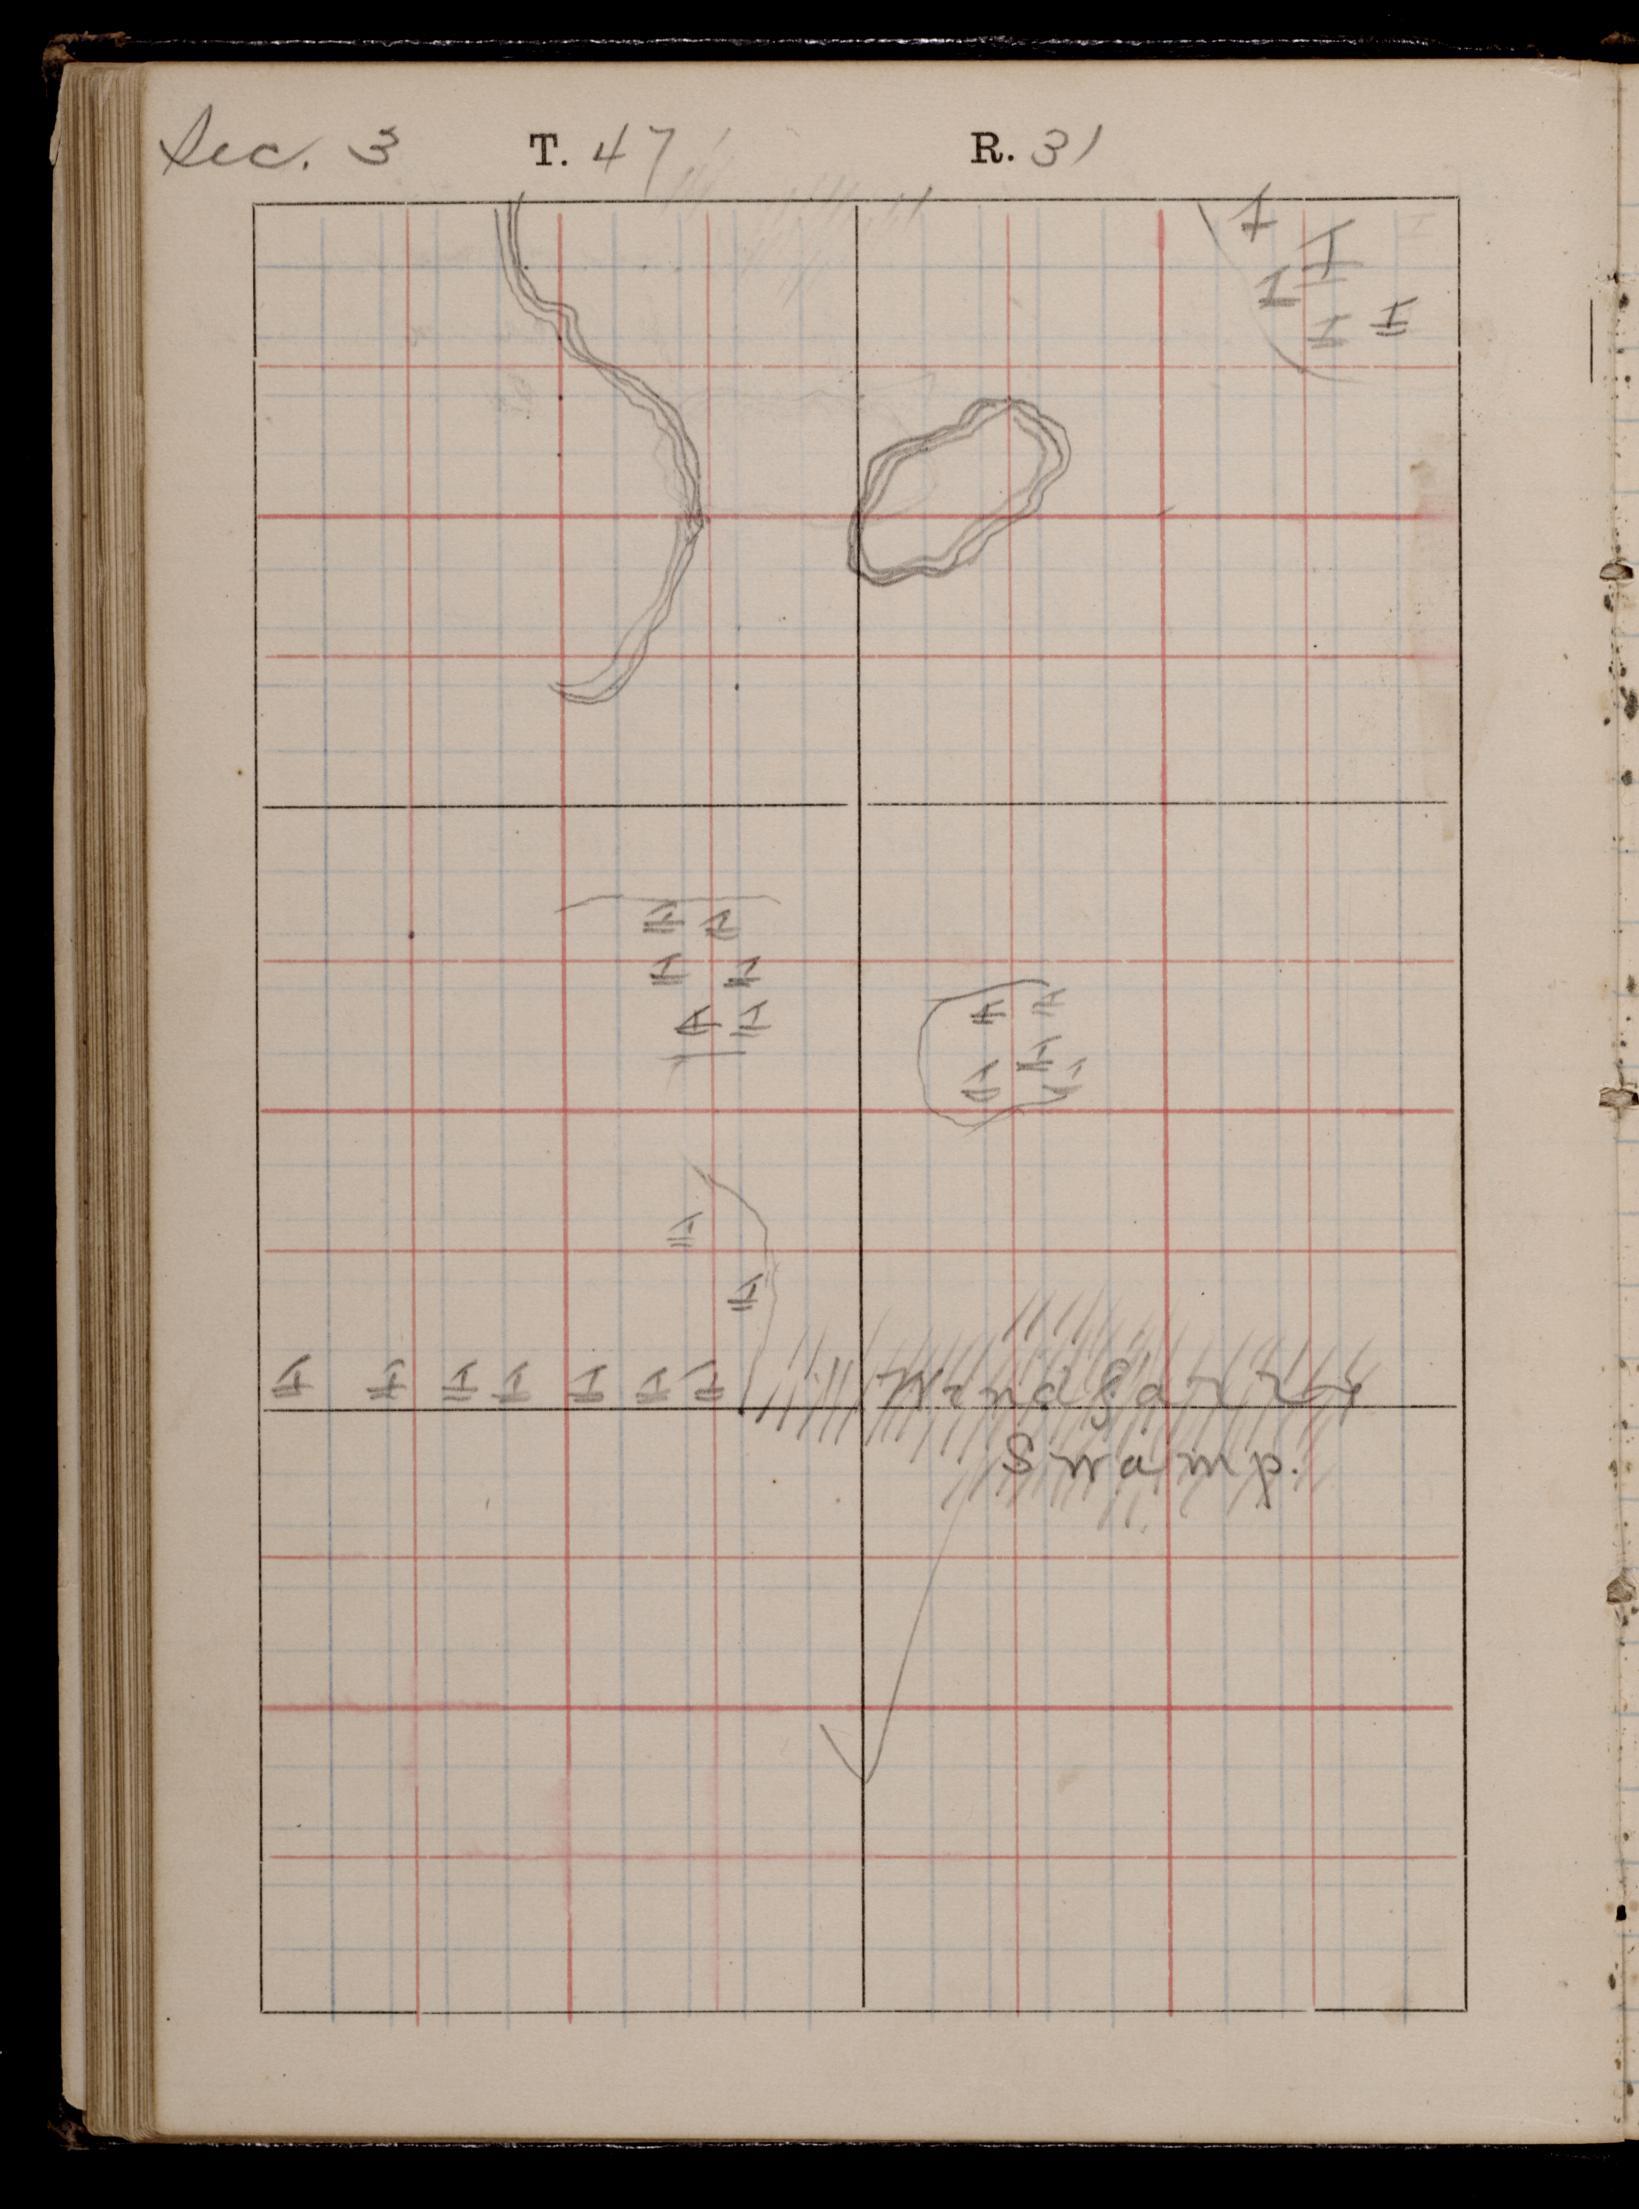 Sec. 3 T. 47 R. 31
Windfall
Swamp.